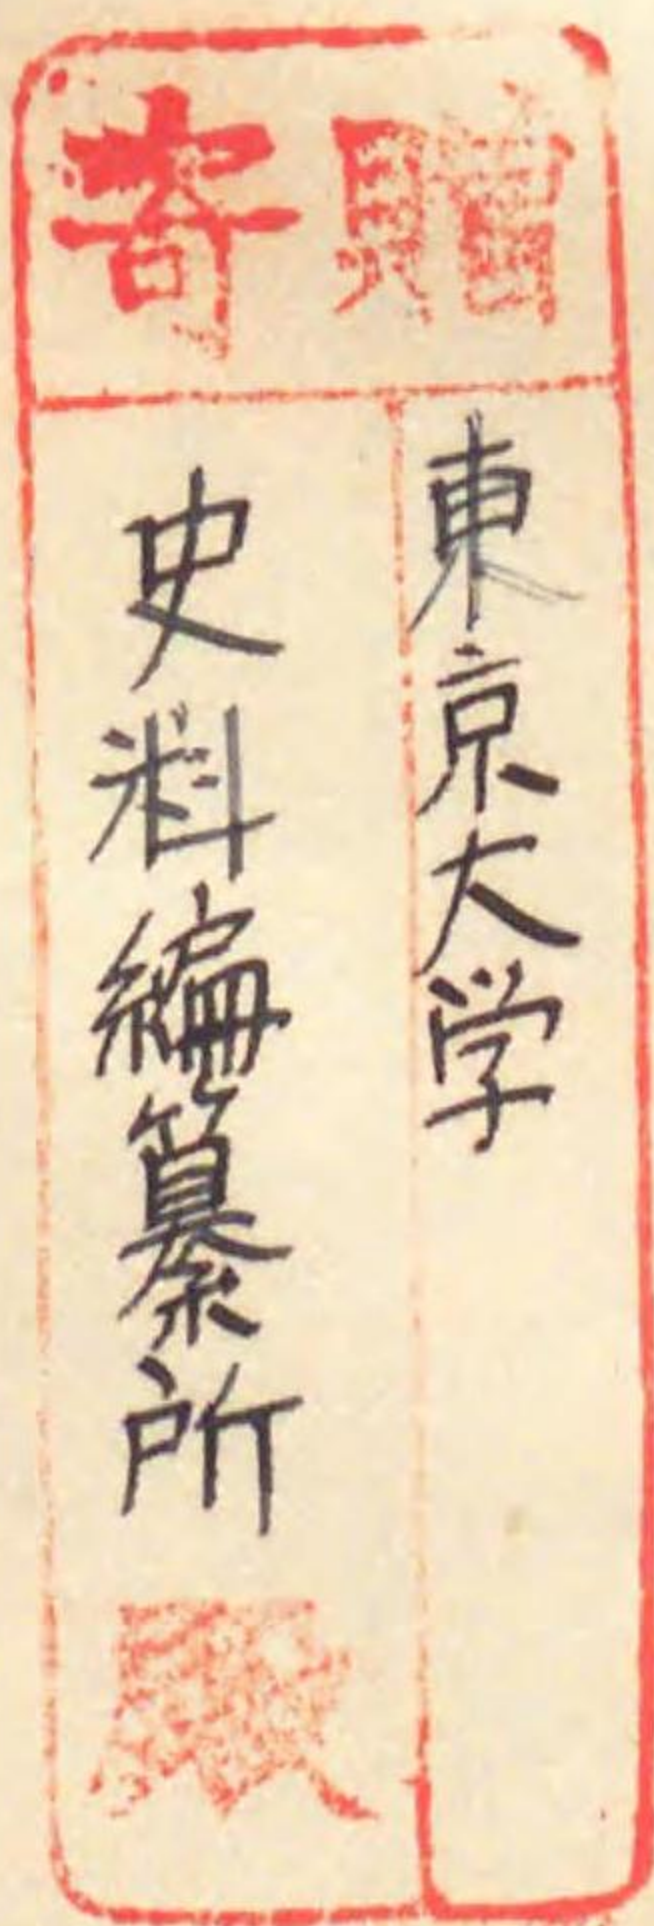 寄贈
東京大学
史料編纂所
殿